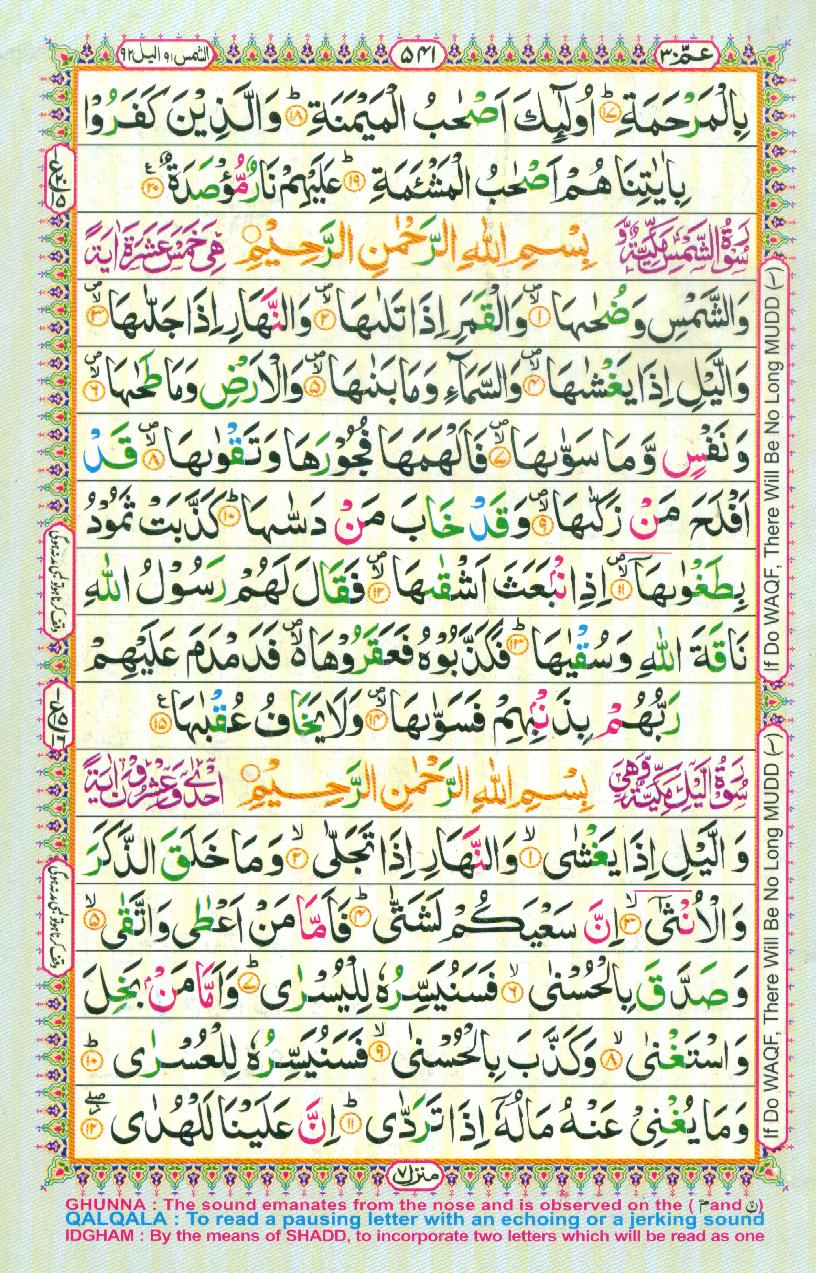 عمّ ٣٠
٥٤١
الشمس ٩١ و اليل ٩٢
بِالْمَرْحَمَةِ ﴿١٧﴾ؕ اُولٰٓئِكَ اَصْحٰبُ الْمَيْمَنَةِ ﴿١٨﴾ؕ وَالَّذِيْنَ كَفَرُوْا
بِاٰيٰتِنَا هُمْ اَصْحٰبُ الْمَشْـَٔمَةِ ﴿١٩﴾ؕ عَلَيْهِمْ نَارٌ مُّؤْصَدَةٌ ﴿٢٠﴾
سُوْرَةُ الشَّمْسِ مَكِّيَّةٌ وَّ بِسْمِ اللّٰهِ الرَّحْمٰنِ الرَّحِيْمِ هِيَ خَمْسَ عَشْرَةَ اٰيَةً
وَالشَّمْسِ وَضُحٰىهَا ﴿١﴾ وَالْقَمَرِ اِذَا تَلٰىهَا ﴿٢﴾ وَالنَّهَارِ اِذَا جَلّٰىهَا ﴿٣﴾
وَالَّيْلِ اِذَا يَغْشٰىهَا ﴿٤﴾ وَالسَّمَآءِ وَمَا بَنٰىهَا ﴿٥﴾ وَالْاَرْضِ وَمَا طَحٰىهَا ﴿٦﴾
وَنَفْسٍ وَّمَا سَوّٰىهَا ﴿٧﴾ فَاَلْهَمَهَا فُجُوْرَهَا وَتَقْوٰىهَا ﴿٨﴾ قَدْ
اَفْلَحَ مَنْ زَكّٰىهَا ﴿٩﴾ وَقَدْ خَابَ مَنْ دَسّٰىهَا ﴿١٠﴾ؕ كَذَّبَتْ ثَمُوْدُ
بِطَغْوٰىهَا ﴿١١﴾ اِذِ انْۢبَعَثَ اَشْقٰىهَا ﴿١٢﴾ فَقَالَ لَهُمْ رَسُوْلُ اللّٰهِ
نَاقَةَ اللّٰهِ وَسُقْيٰهَا ﴿١٣﴾ؕ فَكَذَّبُوْهُ فَعَقَرُوْهَا ۙ۬ فَدَمْدَمَ عَلَيْهِمْ
رَبُّهُمْ بِذَنْۢبِهِمْ فَسَوّٰىهَا ﴿١٤﴾ وَلَا يَخَافُ عُقْبٰهَا ﴿١٥﴾
سُوْرَةُ الَّيْلِ مَكِّيَّةٌ وَّهِيَ بِسْمِ اللّٰهِ الرَّحْمٰنِ الرَّحِيْمِ اِحْدٰى وَعِشْرُوْنَ اٰيَةً
وَالَّيْلِ اِذَا يَغْشٰى ﴿١﴾ۙ وَالنَّهَارِ اِذَا تَجَلّٰى ﴿٢﴾ۙ وَمَا خَلَقَ الذَّكَرَ
وَالْاُنْثٰٓى ﴿٣﴾ۙ اِنَّ سَعْيَكُمْ لَشَتّٰى ﴿٤﴾ؕ فَاَمَّا مَنْ اَعْطٰى وَاتَّقٰى ﴿٥﴾ۙ
وَصَدَّقَ بِالْحُسْنٰى ﴿٦﴾ۙ فَسَنُيَسِّرُهٗ لِلْيُسْرٰى ﴿٧﴾ؕ وَاَمَّا مَنْۢ بَخِلَ
وَاسْتَغْنٰى ﴿٨﴾ۙ وَكَذَّبَ بِالْحُسْنٰى ﴿٩﴾ۙ فَسَنُيَسِّرُهٗ لِلْعُسْرٰى ﴿١٠﴾ؕ
وَمَا يُغْنِيْ عَنْهُ مَالُهٗۤ اِذَا تَرَدّٰى ﴿١١﴾ؕ اِنَّ عَلَيْنَا لَلْهُدٰى ﴿١٢﴾
If Do WAQF, There Will Be No Long MUDD (~)
If Do WAQF, There Will Be No Long MUDD (~)
منزل ٧
GHUNNA : The sound emanates from the nose and is observed on the ( مّ and نّ)
QALQALA : To read a pausing letter with an echoing or a jerking sound
IDGHAM : By the means of SHADD, to incorporate two letters which will be read as one